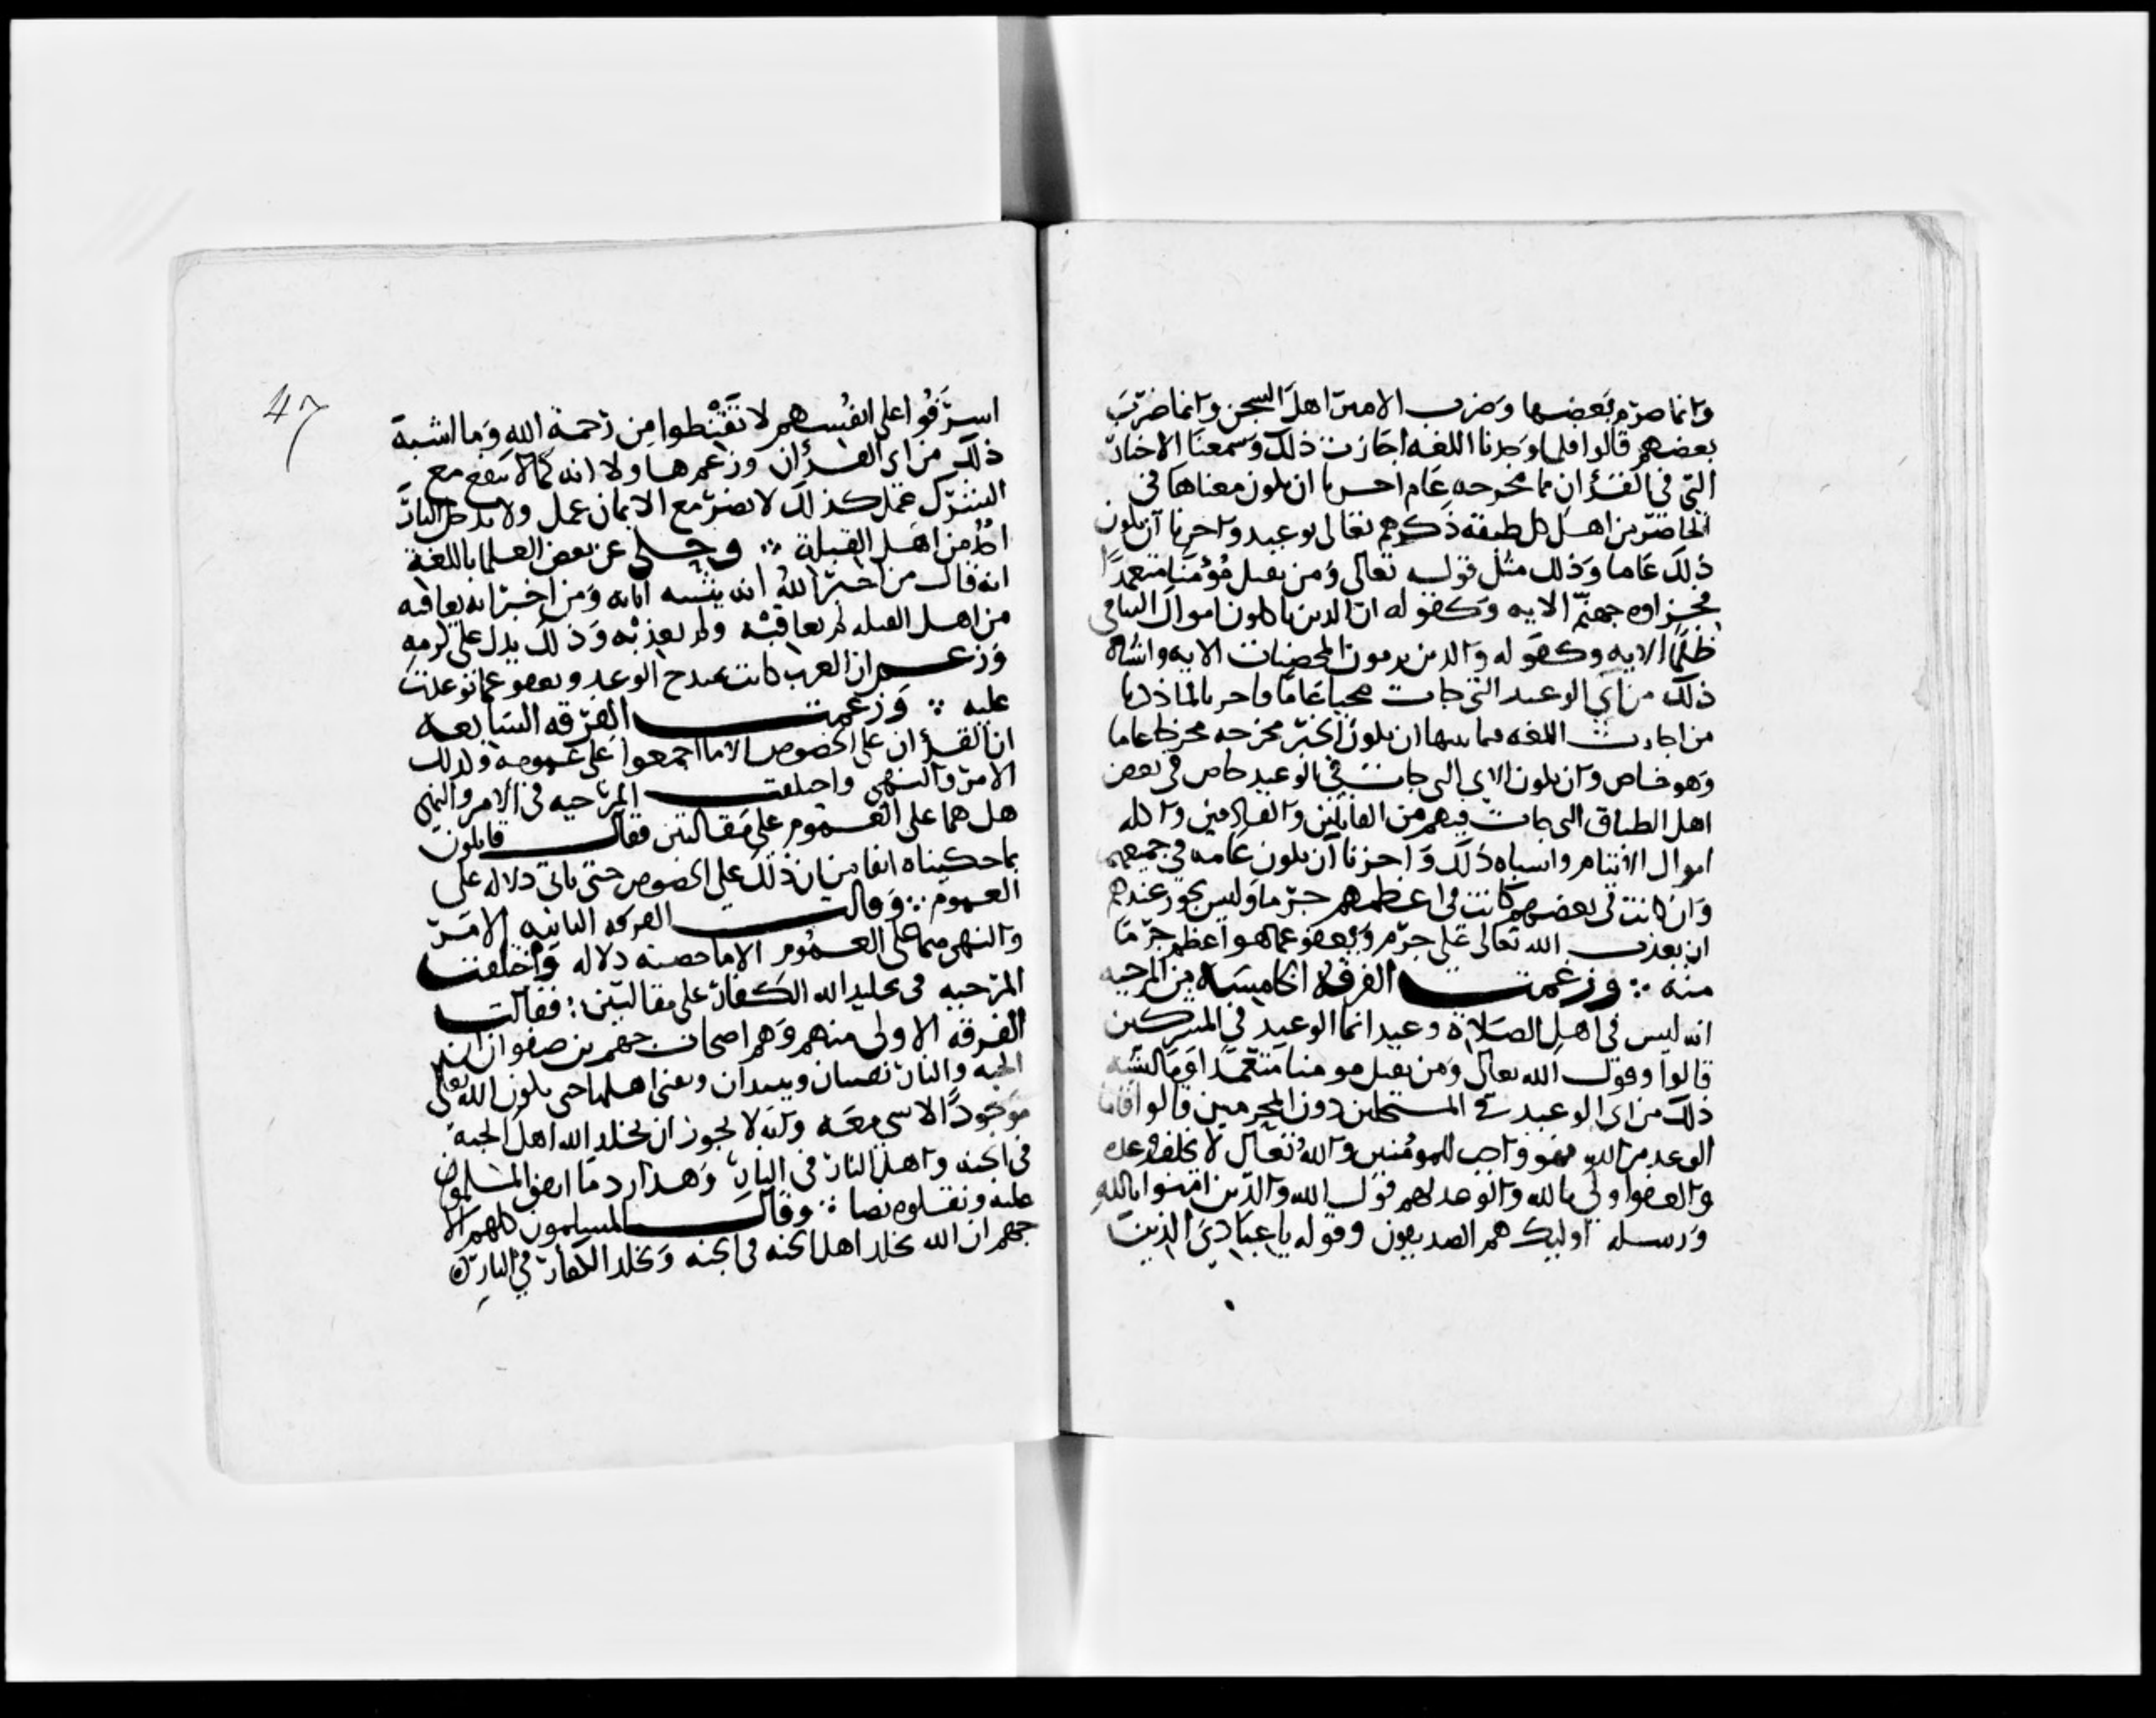 وانما صرم بعضها وضرب الامير اهل السجن وانما ضرب
بعضهم قالوا فلما وجدنا اللغه اجازت ذلك وسمعنا الاخبار
التي في القرٔان مما مخرجه عام اجزنا ان يكون معناها في
الخاص من اهل كل طبقة ذكرهم تعالى بوعيد واجزنا ان يكون
ذلك عاما وذلك مثل قوله تعالى ومن يقتل مؤمنا متعمدا
فجزاوه جهنم الايه وكقوله ان الذين ياكلون اموال اليتامى
ظلما الايه وكقوله والذين يرمون المحصنات الايه واشباه
ذلك من آي الوعيد التي جات مجيا عاما فاجزنا لما ذكرنا
من اجازت اللغه فيما بينها ان يكون الخبر مخرجه مخرجا عاما
وهو خاص وان يكون الاي التي جات في الوعيد خاص في بعض
اهل الطباق التي جات فيهم من القاتلين والقاذفين واكله
اموال الايتام واشباه ذلك واجزنا ان يكون عامه في جميعهم
وان كانت في بعضهم كانت في اعظمهم جرما وليس يجوز عندهم
ان يعذب الله تعالى على جرم ويعفو عما هو اعظم جرما
منه ∴ وزعمت الفرقة الخامسة من المرجيه
انه ليس في اهل الصلاة وعيد انما الوعيد في المشركين
قالوا وقول الله تعالى ومن يقتل مومنا متعمدا وما اشبه
ذلك من اي الوعيد في المستحلين دون المجرمين قالوا فاما
الوعد من الله فهو واجب للمومنين والله تعالى لا يخلف وعده
والعفو اولى بالله والوعد لهم قول الله والذين امنوا بالله
ورسله اوليك هم الصديقون وقوله يا عبادي الذين
47
اسرفوا على انفسهم لا تقنطوا من رحمة الله وما اشبه
ذلك من اي القرٔان وزعم هاولا انه كما لا ينفع مع
الشرك عمل كذلك لا يضر مع الايمان عمل ولا يدخل النار
احد من اهل القبلة ∴ وحكي عن بعض العلما باللغة
انه قال من اخبر الله انه يثيبه اثابه ومن اخبر انه يعاقبه
من اهل القبله لم يعاقبه ولم يعذبه وذلك يدل على كرمه
وزعم ان العرب كانت تمدح الوعد ويعفو عما توعدت
عليه ∴ وزعمت الفرقه السابعه
ان القرٔان على الخصوص الا ما اجمعوا على عمومه وكذلك
الامر والنهي واختلفت المرجيه في الامر والنهي
هل هما على العموم على مقالتين فقال قايلون
بما حكيناه انفا من ان ذلك على الخصوص حتى ياتي دلاله على
العموم ∴ وقالت الفرقه الثانيه الامر
والنهي هما على العموم الا ما خصته دلاله واختلفت
المرجيه في تخليد الله الكفار على مقالتين ∴ فقالت
الفرقه الاولى منهم وهم اصحاب جهم بن صفوان ان
الجنه والنار تفنيان وتبيدان ويفنى اهلهما حتى يكون الله تعالى
موجودا لا شي معه وانه لا يجوز ان يخلد الله اهل الجنة
في الجنه واهل النار في النار وهذا رد ما اتفق المسلمون
عليه ونقلوه نصا ∴ وقال المسلمون كلهم الا
جهم ان الله يخلد اهل الجنه في الجنه ويخلد الكفار في النار